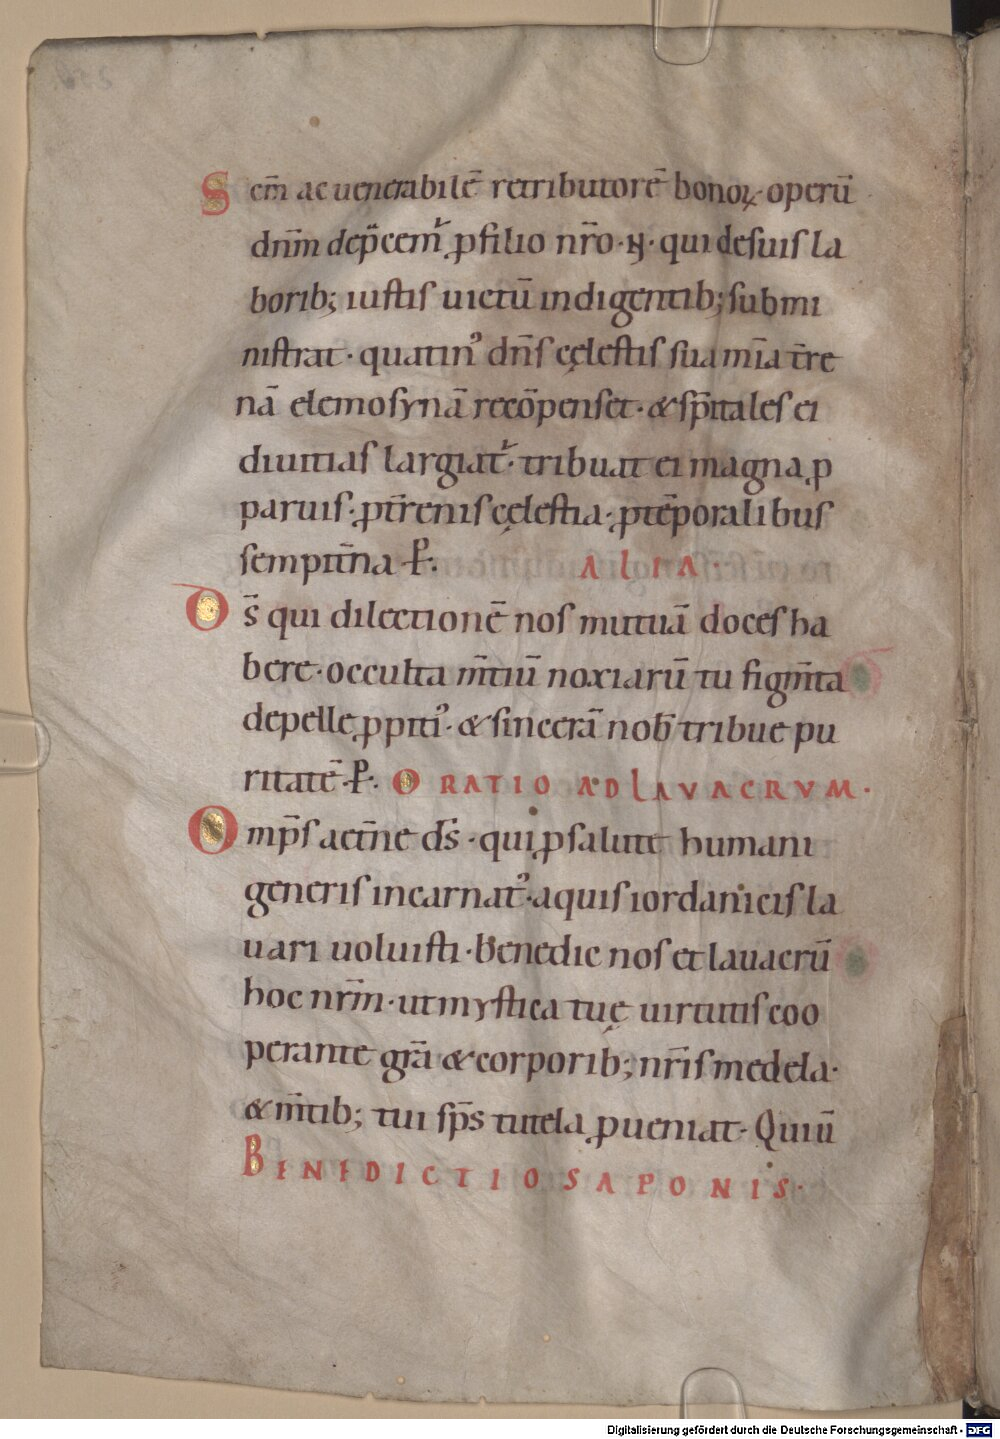 Scm̄ ac uenerabilē retributorē bonoꝝ operū
dn̄m dep̄cemᷣ ꝑ filio nr̄o · N · qui de suis la
borib; iustis uictū indigentib; submi
nistrat · quatinꝰ dn̄s cęlestis sua mīa t̄re
nā elemosynā recōpenset · & sp̄itales ei
diuitias largiatᷣ · tribuat ei magna ꝓ
paruis · ꝓ t̄renis cęlestia · ꝓ tēporalibus
sempit̄na · P̄ ·
ALIA ·
Ds̄ qui dilectionē nos mutuā doces ha
bere · occulta m̄tiū noxiarū tu figm̄ta
depelle ꝓpitiꝰ · & sincerā nob̄ tribue pu
ritatē · P̄ · ORATIO AD LAVACRVM ·
Omp̄s aet̄ne ds̄ · qui ꝓ salute humani
generis incarnatꝰ · aquis iordanicis la
uari uoluisti · Benedic nos et lauacrū
hoc nr̄m · ut mystica tuę uirtutis coo
perante gr̄a & corporib; nr̄is medela ·
& m̄tib; tui sp̄s tutela ꝓueniat · Qui ū
BENEDICTIO SAPONIS ·
Digitalisierung gefördert durch die Deutsche Forschungsgemeinschaft - DFG